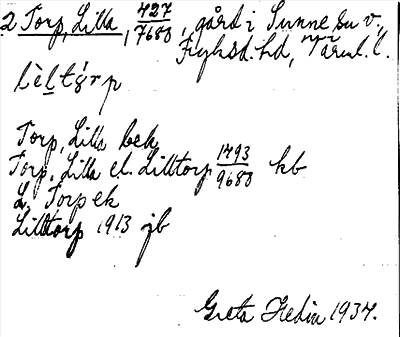 2 Torp, Lilla, 427/7680, gård i Sunne su v.,
Fryksd. hd, Värml. l.
Torp, Lilla bek
Torp, Lilla el. Lilltorp 1493/9680 kb
L. Torp ek
Lilltorp 1913 jb
Greta Hedin 1934.